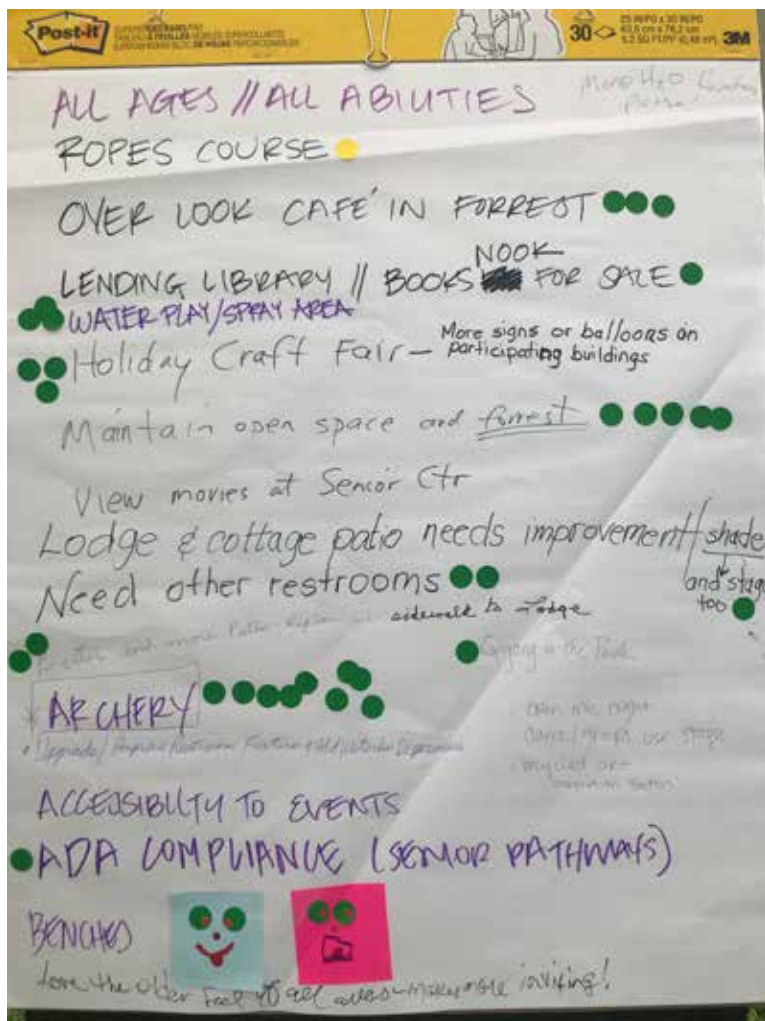 Post-it
30
25 IN/PO x 30 IN/PO
63,5 cm x 76,2 cm
3M
ALL AGES // ALL ABILITIES
More H2O
Please
ROPES COURSE
OVER LOOK CAFÉ IN FORREST
NOOK
LENDING LIBRARY // BOOKS FOR SALE
WATER PLAY/SPRAY AREA
Holiday Craft Fair – More signs or balloons on
participating buildings
Maintain open space and forrest
View movies at Senior Ctr
Lodge & cottage patio needs improvement/shade
and stage
too
Need other restrooms
sidewalk to Lodge
in the Park
ARCHERY
open mic night
dance/group use stage
Upgrade/
ACCESSIBILTY TO EVENTS
ADA COMPLIANCE (SENIOR PATHWAYS)
BENCHES
Love the older feel of all areas – make more inviting!